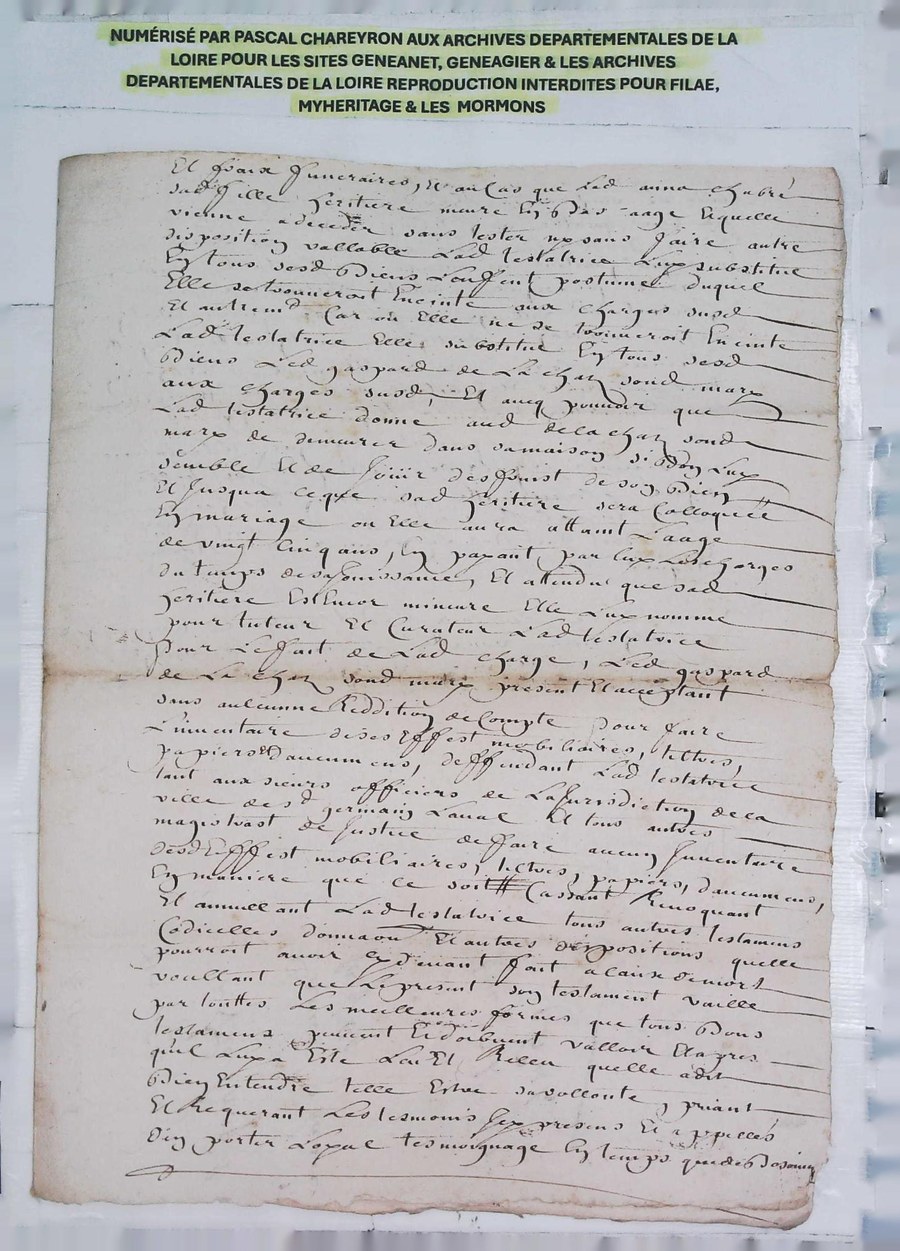 NUMÉRISÉ PAR PASCAL CHAREYRON AUX ARCHIVES DEPARTEMENTALES DE LA
LOIRE POUR LES SITES GENEANET, GENEAGIER & LES ARCHIVES
DEPARTEMENTALES DE LA LOIRE REPRODUCTION INTERDITES POUR FILAE,
MYHERITAGE & LES MORMONS
Et fraix funeraires, et au cas que lad anna chabré
sad fille heritiere meure en bas aage lequelle
vienne a deceder sans tester ny sans faire autre
disposition vallable lad testatrice luy substitue
en tous sesd biens l'enffent postume duquel
Elle se trouueroit Enceinte aux charges susd
Et autremt Car ou Elle ne se trouueroit Enceinte
Lad testatrice Elle substitue en tous sesd
biens led gaspard de La chaz sond mary
aux charges susd, Et aucq pouuoir que
Lad testatrice donne aud de la chaz sond
mary de demeurer dans sa maison
semble Et de Jouir des fruist de son bien
Et Jusqua ce que sad heritiere sera Colloquée
En mariage ou Elle aura attaint Laage
de vingt cinq ans, En payant par luy Les charges
du temps de sa Jouissance, Et attendu que sad
heritiere Est Encor mineure Elle luy nomme
pour tuteur Et Curateur Lad testatrice
pour Le fait de Lad charge, Led gaspard
de La chaz sond mary present Et acceptant
sans aulcunne Reddition de Compte pour faire
L'inuentaire de ses Effest mobiliaires, tiltres,
papiers Et daucumens, deffendant Lad testatrice
tant aux sieurs officiers de La Jurisdiction de la
ville de st germain Laual Et tous autres
magistrast de Justice de faire aucun Inuentaire
desd Effest mobiliaires, tiltres, papiers, daucumens,
En maniere que ce soit Cassant Reuoquant
Et annullant Lad testatrice tous autres testamens
Codicelles donnaon Et autres dispositions quelle
pourroit auoir cy deuant fait a cause de mort
voullant que Le present son testament vaille
par touttes Les meilleures formes que tous bons
testamens peuuent Et doibuent valloir Et apres
quil Luy a Este Leu Et Releu quelle a dit
bien Entendre telle Estre sa vollonte, priant
Et Requerant Les tesmoins Icy presens Et appellés
d'en porter Loyal tesmoignage En temps que de besoing